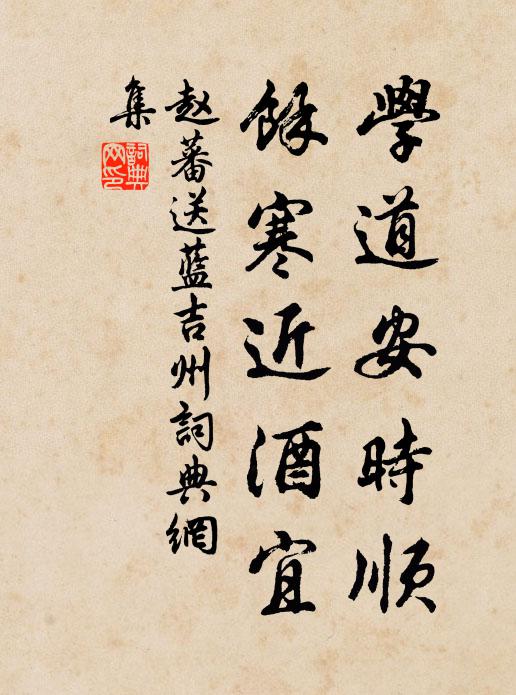 學道安時順
餘寒近酒宜
赵蕃送藍吉州詞典網
集
詞典
网印